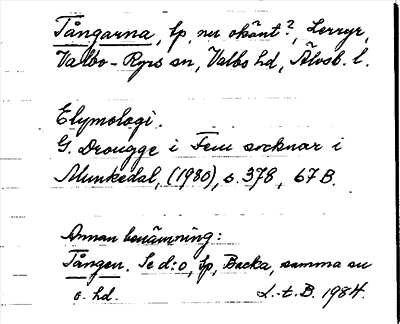 Tångarna, tp, nu okänt?, Lerryr,
Valbo-Ryrs sn, Valbo hd, Älvsb. l.
Etymologi.
G. Drougge i Fem socknar i
Munkedal, (1980), s. 378, 67 B.
Annan benämning:
Tången. Se d:o, tp, Backa, samma sn
o. hd. L.-t. B. 1984.